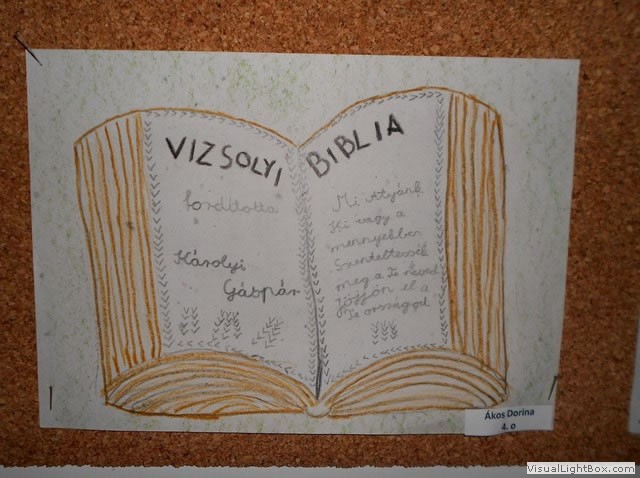 VIZSOLYI BIBLIA
fordította
Károlyi
Gáspár
Mi Atyánk
Ki vagy a
mennyekben
Szenteltessék
meg a Te neved
Jöjjön el a
Te országod
Ákos Dorina
4. o
VisualLightBox.com